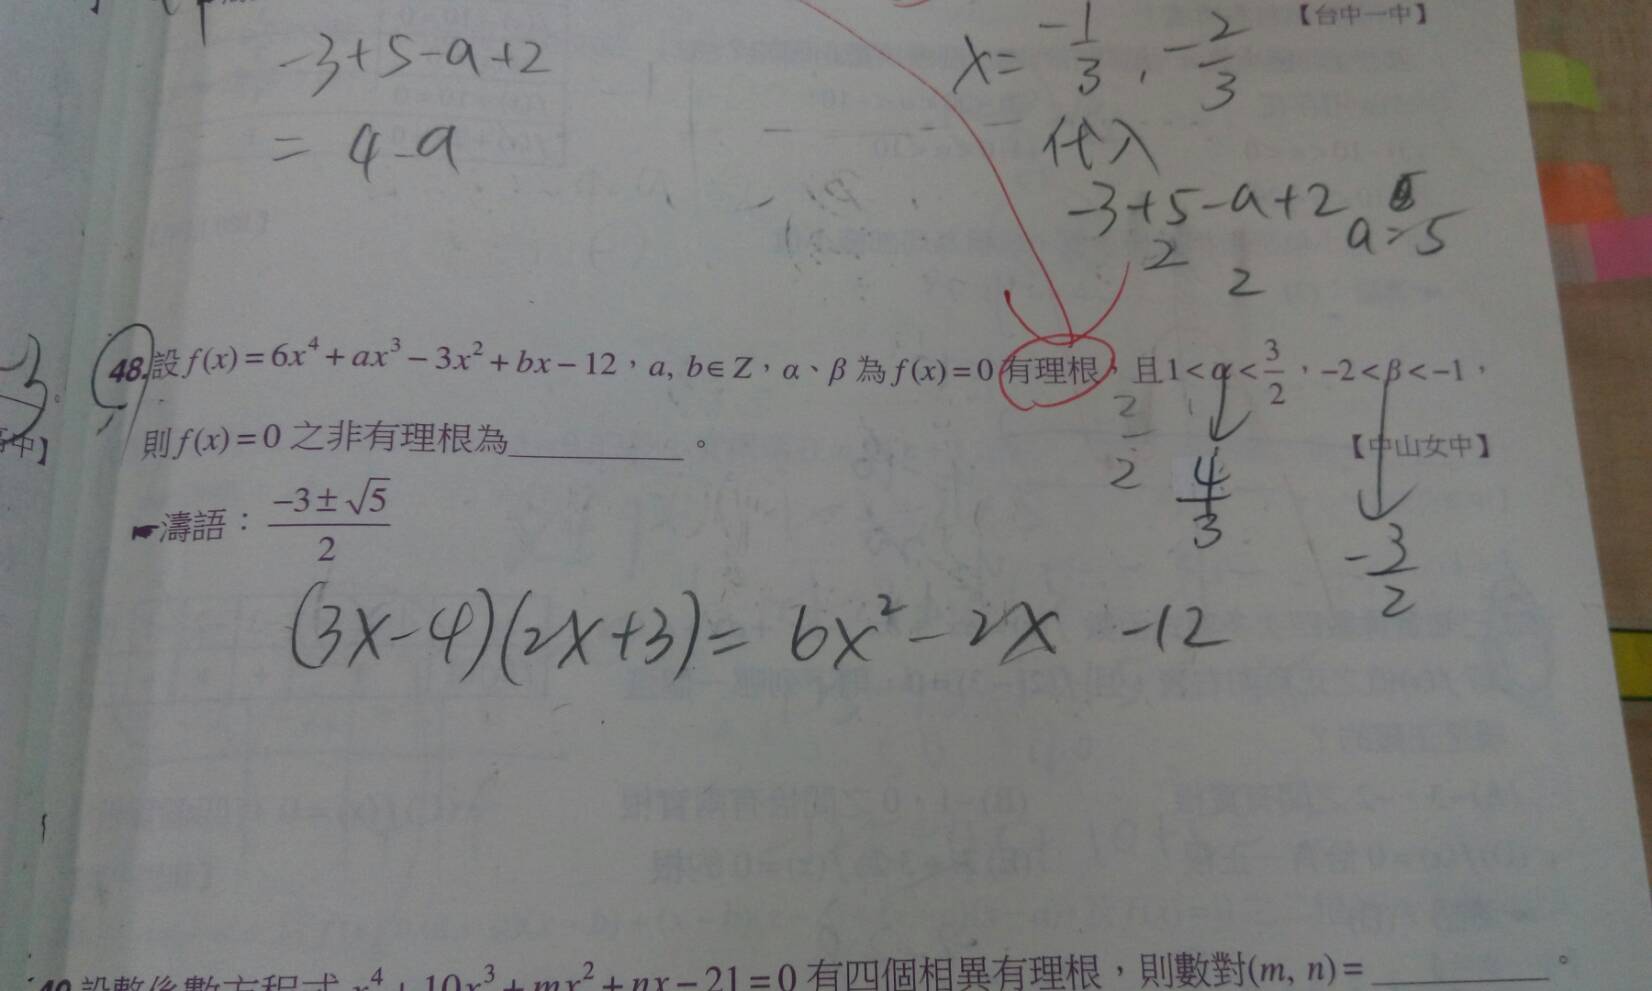 -3+5-a+2
= 4-a
【台中一中】
x= -1/3, -2/3
代入
-3+5-a+2
a=5
2
2
48.設f(x)=6x⁴+ax³-3x²+bx-12，a, b∈Z，α、β為f(x)=0有理根，且1<α<3/2，-2<β<-1，
則f(x)=0之非有理根為__________。
【中山女中】
2/2
4/3
-3/2
☛濤語：(-3±√5)/2
(3x-4)(2x+3)= 6x²-2x -12
中】
49.設整係數方程式x⁴+10x³+mx²+nx-21=0有四個相異有理根，則數對(m, n)=__________。